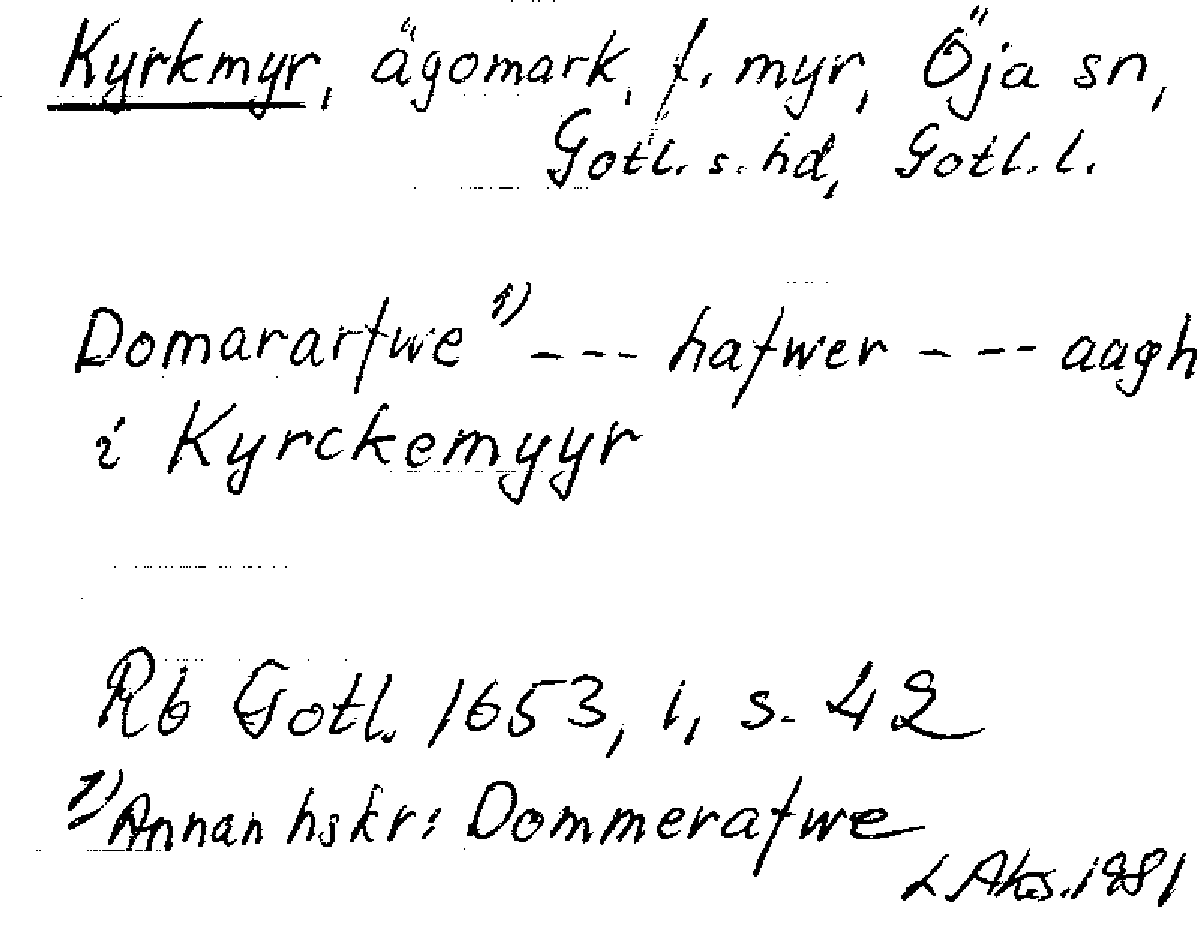 Kyrkmyr, ägomark, f. myr, Öja sn,
Gotl. s. hd, Gotl. l.
Domararfwe 1) --- hafwer --- aagh
i Kyrckemyyr
Rb Gotl. 1653, 1, s. 42
1) Annan hskr: Dommerafwe
L Aks. 1981